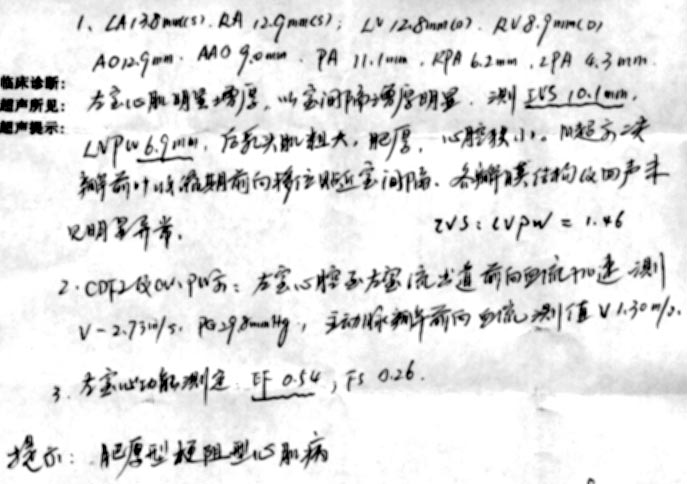 1、LA13.8mm(s). RA 12.9mm(s); LV 12.8mm(D). RV8.9mm(D)
AO12.9mm. AAO 9.0mm. PA 11.1mm. RPA 6.2mm. LPA 4.3mm.
临床诊断:
超声所见: 左室心肌明显增厚,以室间隔增厚明显. 测IVS 10.1mm,
超声提示: LVPW 6.9mm, 后乳头肌粗大,肥厚, 心腔狭小。M超示二尖
瓣前叶收缩期前向移位贴近室间隔. 各瓣膜结构及回声未
见明显异常. IVS:LVPW = 1.46
2. CDFI及CW、PW示: 左室心腔至左室流出道前向血流加速 测
V-2.73m/s. PG29.8mmHg, 主动脉瓣前向血流测值V1.30m/s.
3. 左室心功能测定: EF 0.54, FS 0.26.
提示: 肥厚型梗阻型心肌病